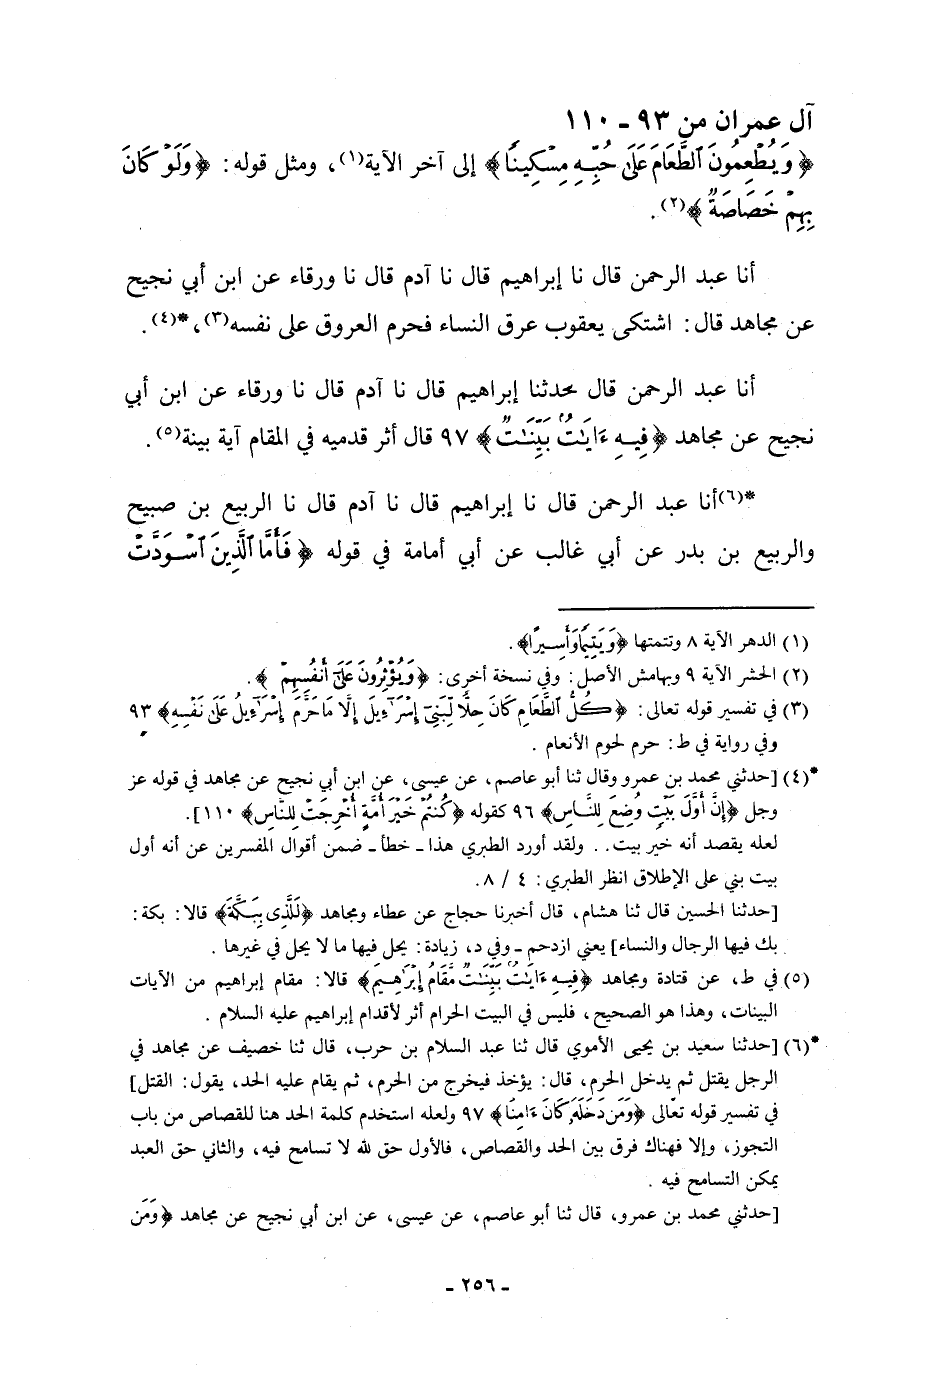 آل عمران من ٩٣ ـ ١١٠
﴿وَيُطْعِمُونَ ٱلطَّعَامَ عَلَىٰ حُبِّهِۦ مِسْكِينًا﴾ إلى آخر الآية(١)، ومثل قوله: ﴿وَلَوْ كَانَ
بِهِمْ خَصَاصَةٌ﴾(٢).
أنا عبد الرحمن قال نا إبراهيم قال نا آدم قال نا ورقاء عن ابن أبي نجيح
عن مجاهد قال: اشتكى يعقوب عرق النساء فحرم العروق على نفسه(٣)، *(٤).
أنا عبد الرحمن قال حدثنا إبراهيم قال نا آدم قال نا ورقاء عن ابن أبي
نجيح عن مجاهد ﴿فِيهِ ءَايَٰتٌۢ بَيِّنَٰتٌ﴾ ٩٧ قال أثر قدميه في المقام آية بينة(٥).
*(٦)أنا عبد الرحمن قال نا إبراهيم قال نا آدم قال نا الربيع بن صبيح
والربيع بن بدر عن أبي غالب عن أبي أمامة في قوله ﴿فَأَمَّا ٱلَّذِينَ ٱسْوَدَّتْ
(١) الدهر الآية ٨ وتتمتها ﴿وَيَتِيمًا وَأَسِيرًا﴾.
(٢) الحشر الآية ٩ وبهامش الأصل: وفي نسخة أخرى: ﴿وَيُؤْثِرُونَ عَلَىٰٓ أَنفُسِهِمْ﴾.
(٣) في تفسير قوله تعالى: ﴿كُلُّ ٱلطَّعَامِ كَانَ حِلًّا لِّبَنِىٓ إِسْرَٰٓءِيلَ إِلَّا مَا حَرَّمَ إِسْرَٰٓءِيلُ عَلَىٰ نَفْسِهِۦ﴾ ٩٣
وفي رواية في ط: حرم لحوم الأنعام .
*(٤) [حدثني محمد بن عمرو وقال ثنا أبو عاصم، عن عيسى، عن ابن أبي نجيح عن مجاهد في قوله عز
وجل ﴿إِنَّ أَوَّلَ بَيْتٍ وُضِعَ لِلنَّاسِ﴾ ٩٦ كقوله ﴿كُنتُمْ خَيْرَ أُمَّةٍ أُخْرِجَتْ لِلنَّاسِ﴾ ١١٠].
لعله يقصد أنه خير بيت.. ولقد أورد الطبري هذا ـ خطأ ـ ضمن أقوال المفسرين عن أنه أول
بيت بني على الإطلاق انظر الطبري: ٤ / ٨.
[حدثنا الحسين قال ثنا هشام، قال أخبرنا حجاج عن عطاء ومجاهد ﴿لَلَّذِى بِبَكَّةَ﴾ قالا: بكة:
بك فيها الرجال والنساء] يعني ازدحم ـ وفي د، زيادة: يحل فيها ما لا يحل في غيرها .
(٥) في ط، عن قتادة ومجاهد ﴿فِيهِ ءَايَٰتٌۢ بَيِّنَٰتٌ مَّقَامُ إِبْرَٰهِيمَ﴾ قالا: مقام إبراهيم من الآيات
البينات، وهذا هو الصحيح، فليس في البيت الحرام أثر لأقدام إبراهيم عليه السلام .
*(٦) [حدثنا سعيد بن يحيى الأموي قال ثنا عبد السلام بن حرب، قال ثنا خصيف عن مجاهد في
الرجل يقتل ثم يدخل الحرم، قال: يؤخذ فيخرج من الحرم، ثم يقام عليه الحد، يقول: القتل]
في تفسير قوله تعالى ﴿وَمَن دَخَلَهُۥ كَانَ ءَامِنًا﴾ ٩٧ ولعله استخدم كلمة الحد هنا للقصاص من باب
التجوز، وإلا فهناك فرق بين الحد والقصاص، فالأول حق لله لا تسامح فيه، والثاني حق العبد
يمكن التسامح فيه .
[حدثني محمد بن عمرو، قال ثنا أبو عاصم، عن عيسى، عن ابن أبي نجيح عن مجاهد ﴿وَمَن
ـ ٢٥٦ ـ